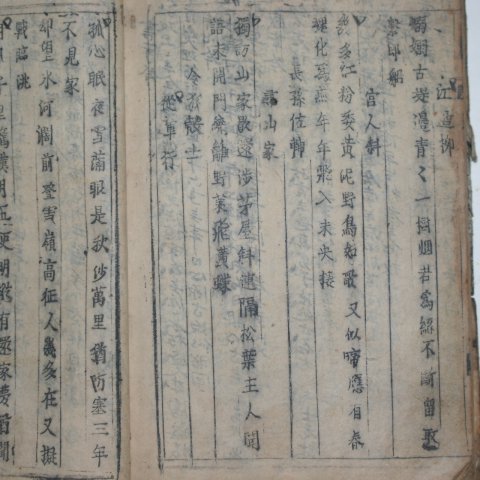 江邊柳
嫋嫋古堤邊青〻一樹烟若爲絲不斷留取
繫郎船
宮人斜
幾多紅粉委黃泥野鳥如歌又似啼應有春
魂化爲燕年年飛入未央棲
長孫佐輔
尋山家
獨訪山家歇還涉茅屋斜連隔松葉主人聞
語未開門繞籬野菜飛黃蝶
令狐殼士
從軍行
孤心眠夜雪滿眼是秋沙萬里猶防塞三年
不見家
却望氷河濶前登雪嶺高征人幾多在又擬
戰臨洮
千里驚漢月五更明縱有還家夢猶聞